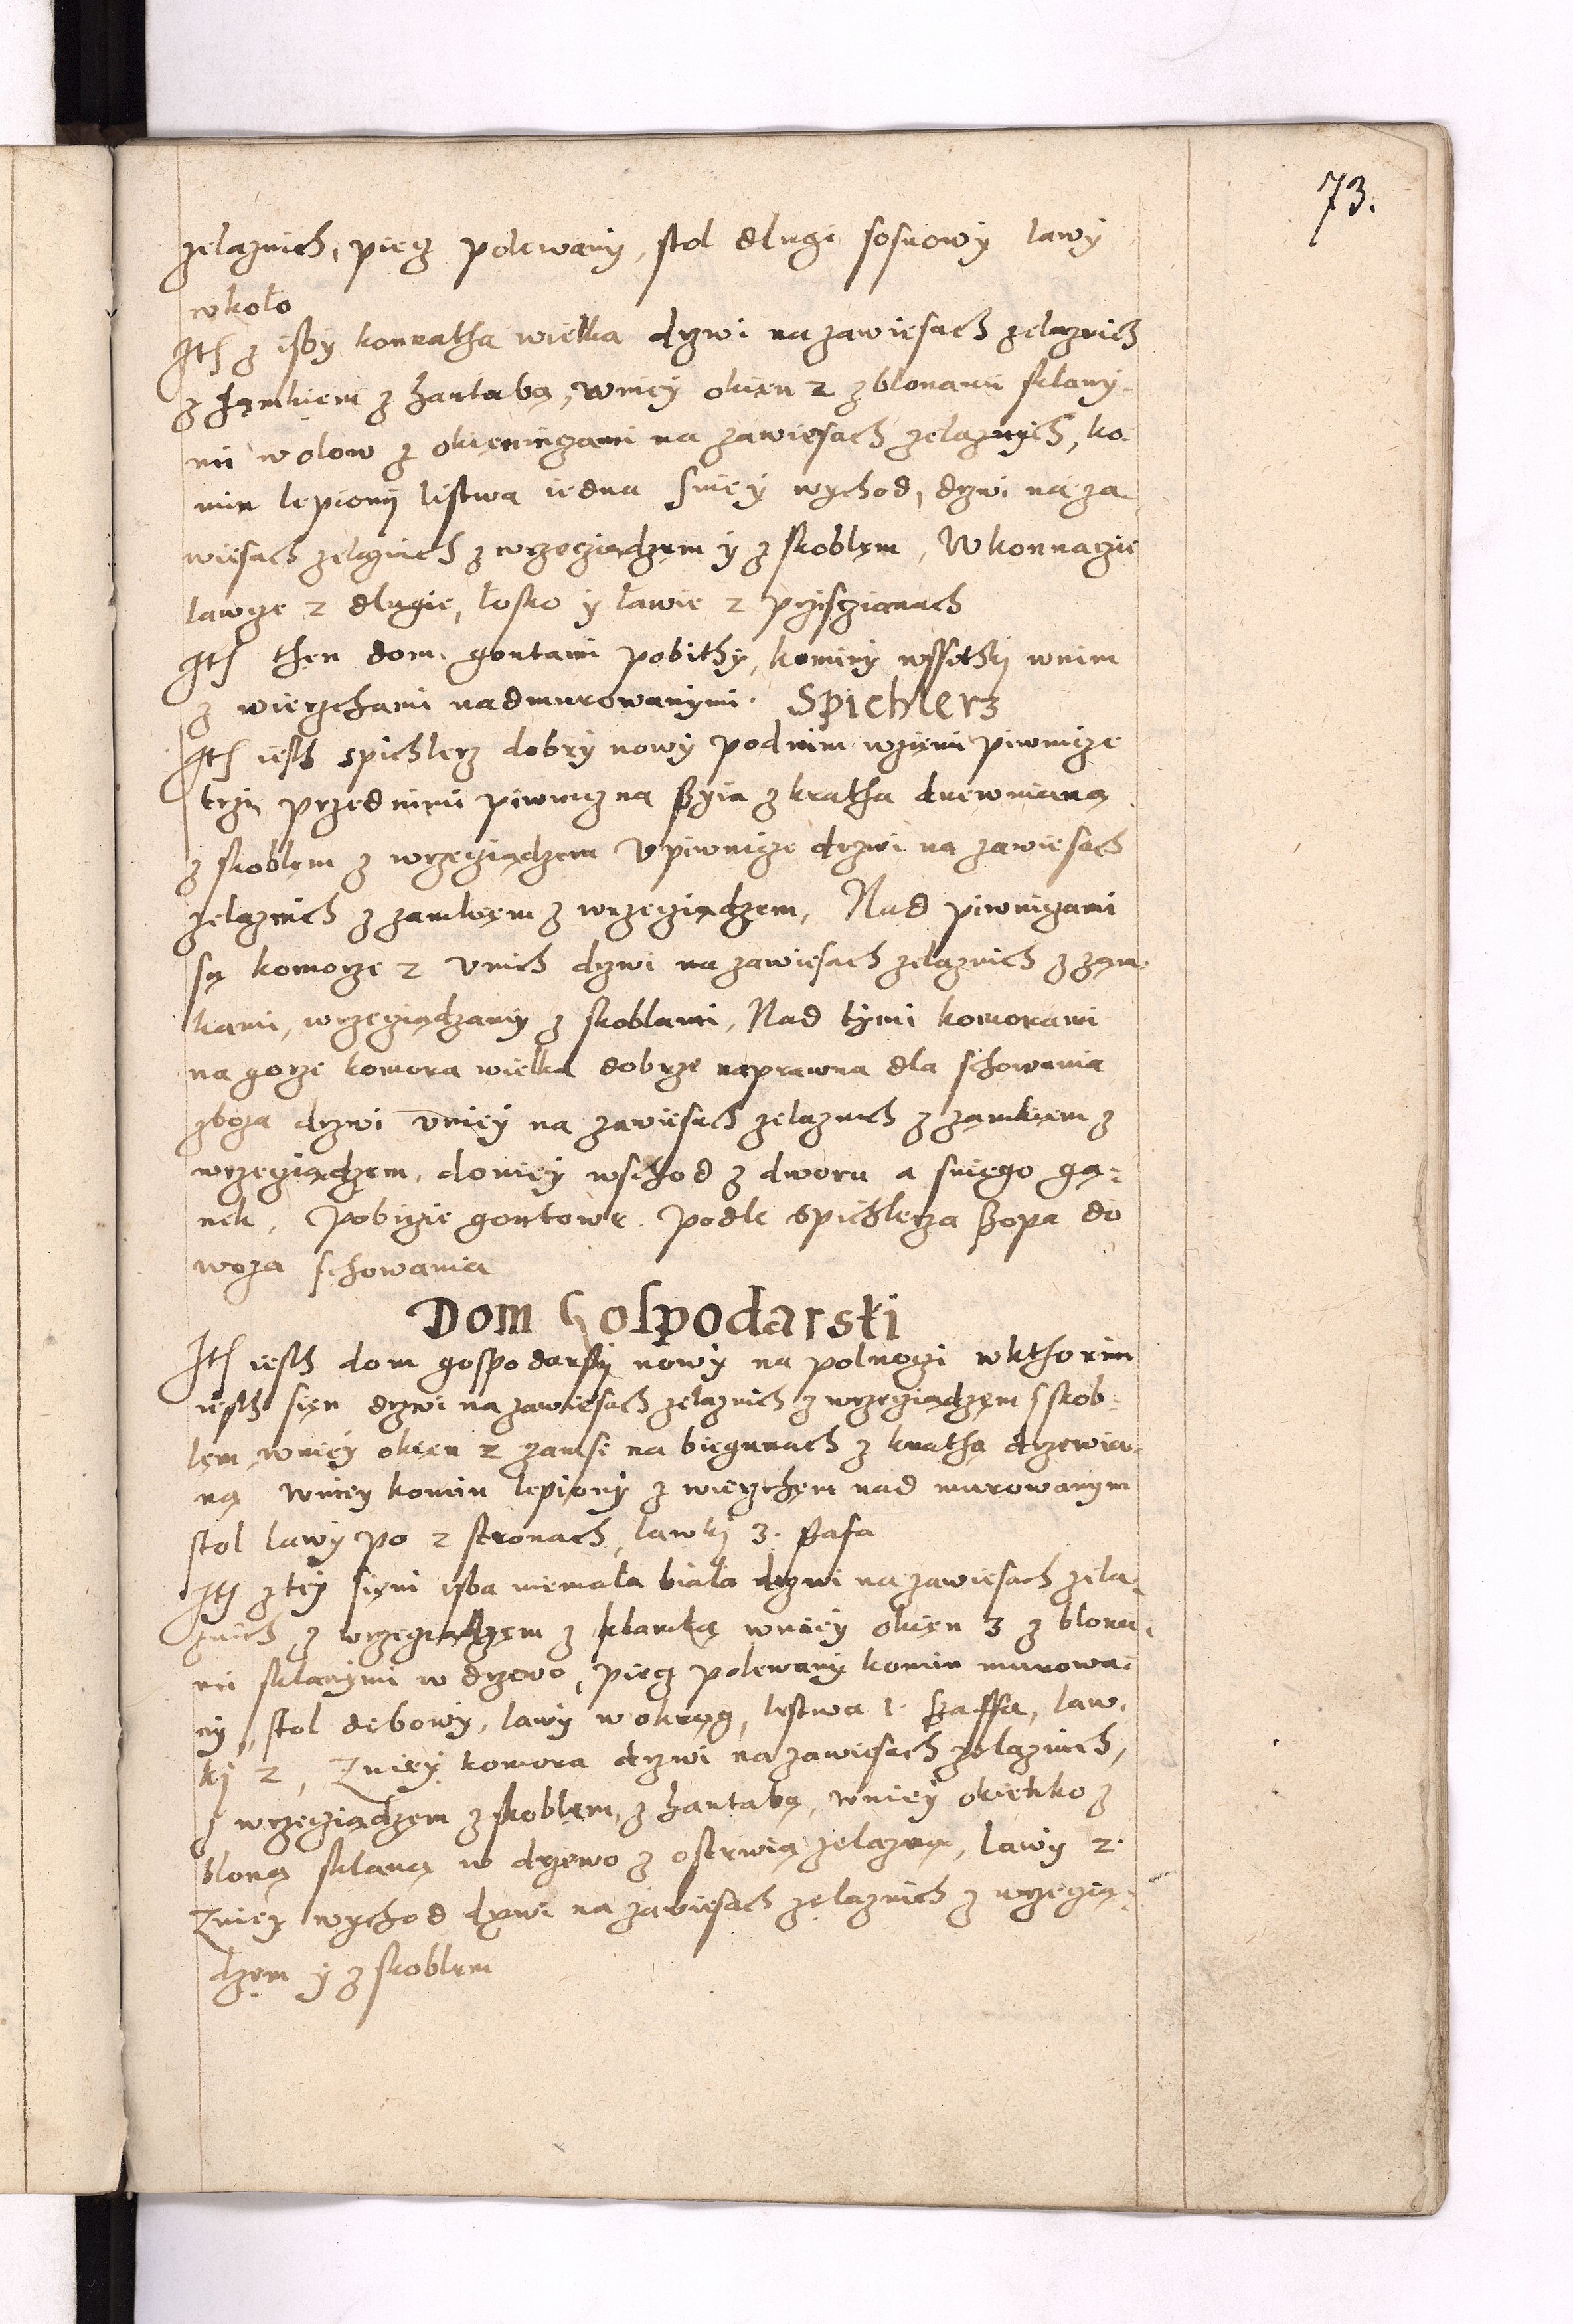 73.
zelaznich, piecz polewany, stol dlugi sosnowy lawy
wkoło
Ith z isby konnatha wielka drzwi na zawiesach zelaznich
z zamkiem z hantabą, wniey okien 2 z blonami sklany-
mi wolow z okienniczami na zawiesach zelaznych, ko-
min lepiony listwa iedna sniey wychod, drzwi na za-
wiesach zelaznich z wrzecziądzem y z skoblem, W konnaczie
lawcze 2 dlugie, łosko y ławie 2 przi sczianach
Ith then dom gontami pobithy, kominy wssitki wnim
z wierzchami nadmurowanymi. Spichlerz
Ith iesth spichlerz dobry nowy podnim wziemi piwnicze
trzy przednimi piwnicz na szyia z kratha drewnianą
z skoblem z wrzecziądzem v piwnicze drzwi na zawiesach
zelaznich z zamkiem z wrzecziądzem, Nad piwniczami
są komorze 2 vnich drzwi na zawiesach zelaznich z zam-
kami, wrzecziądzamy z skoblami, Nad tymi komorami
na gorze komora wielka dobrze naprawna dla schowania
zboza drzwi vniey na zawiesach zelaznich z zamkiem z
wrzecziądzem, doniey wschod z dworu a sniego gą-
nek, Pobiczie gontowe. Podle spichlerza szopa do
woza schowania
Dom Gospodarski
Ith iesth dom gospodarsky nowy na polnoczi wkthorim
iesth sien drzwi na zawiesach zelaznich z wrzecziądzem s skob-
lem, wniey okien 2 na biegunach z krathą drzewia-
ną wniey komin lepiony z wierzchem nad murowanym
stol lawy po 2 stronach, lawki 3. szafa
Ith z tey sieni isba niemała biała drzwi na zawiesach zela-
znich, z wrzecziądzem z klamką wniey okien 3 z blona-
mi sklanymi w drzewo, piecz polewany komin murowa-
ny, stol dębowy, lawy wokrąg, listwa 1. szaffa, law-
ki 2, Zniey komora drzwi na zawiesach zelaznich,
s wrzecziądzem z skoblem, z hantabą, wniey okienko z
bloną sklaną w drzewo z ostrwią zelazną, lawy 2.
Zniey wychod drzwi na zawiesach zelaznich z wrzeczią-
dzem y z skoblem